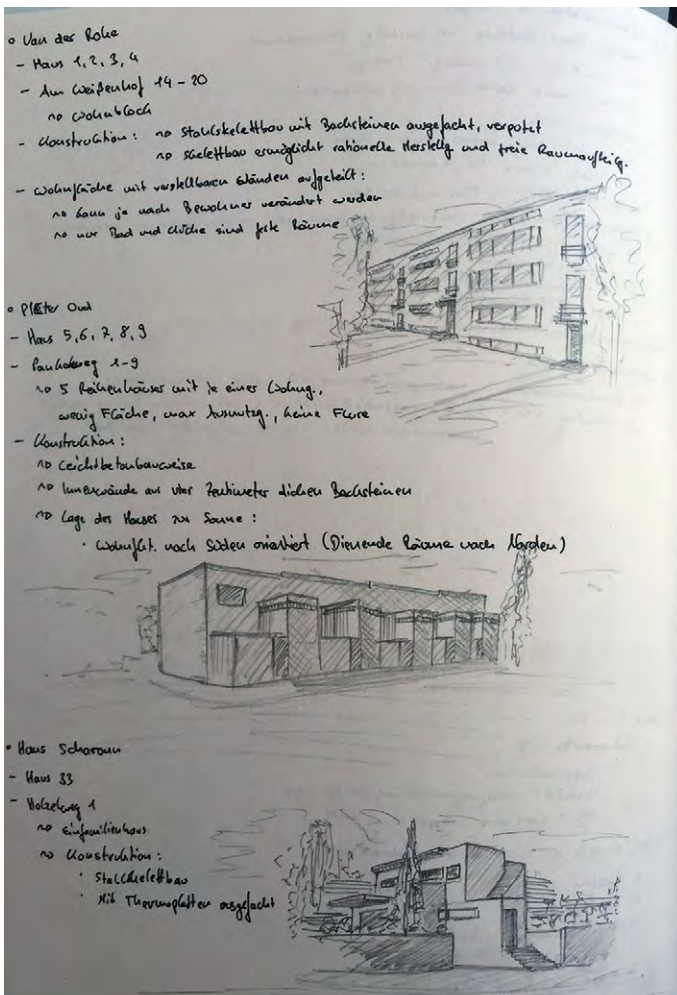 Van der Rohe
- Haus 1, 2, 3, 4
- Am Weißenhof 14 - 20
Wohnblock
- Konstruktion: Stahlskelettbau mit Backsteinen ausgefacht, verputzt
Skelettbau ermöglicht rationelle Herstellg und freie Raumaufteilg.
- Wohnfläche mit verstellbaren Wänden aufgeteilt:
kann je nach Bewohner verändert werden
nur Bad und Küche sind feste Räume
Pieter Oud
- Haus 5, 6, 7, 8, 9
- Pankokweg 1-9
5 Reihenhäuser mit je einer Wohng.,
wenig Fläche, max Ausnutzg., keine Flure
- Konstruktion:
Leichtbetonbauweise
Innenwände aus vier Zentimeter dicken Backsteinen
Lage des Hauses zur Sonne:
· Wohnfkt. nach Süden orientiert (Dienende Räume nach Norden)
Haus Scharoun
- Haus 33
- Hölzelweg 1
Einfamilienhaus
Konstruktion:
· Stahlskelettbau
· Mit Thermoplatten ausgefacht